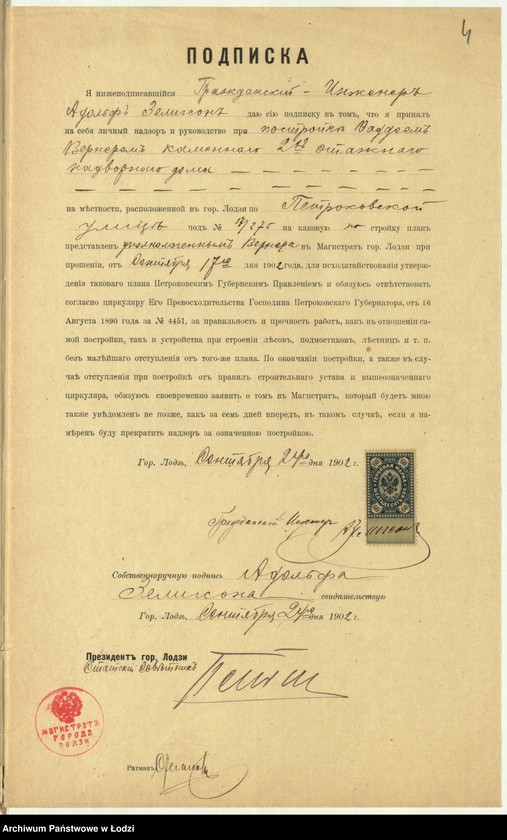 4
ПОДПИСКА
Я нижеподписавшійся Гражданскій - Инженеръ
Адольфъ Зелигсонъ даю сію подписку въ томъ, что я принялъ
на себя личный надзоръ и руководство при постройкѣ Ѳаддеемъ
Вернеромъ каменнаго 2хъ этажнаго
надворнаго дома
на мѣстности, расположенной въ гор. Лодзи по Петроковской
улицѣ подъ № каковую по стройку планъ
представленъ уполномоченнымъ Вернера въ Магистратъ гор. Лодзи при
прошеніи, отъ Сентября 17го дня 1902 года, для исходатайствованія утверж-
денія таковаго плана Петроковскимъ Губернскимъ Правленіемъ и обязуюсь отвѣтствовать
согласно циркуляру Его Превосходительства Господина Петроковскаго Губернатора, отъ 16
Августа 1890 года за № 4451, за правильность и прочность работъ, какъ въ отношеніи са-
мой постройки, такъ и устройства при строеніи лѣсовъ, подмостковъ, лѣстницъ и т. п.
безъ малѣйшаго отступленія отъ того-же плана. По окончаніи постройки, а также къ слу-
чаѣ отступленія при постройкѣ отъ правилъ строительнаго устава и вышеозначеннаго
циркуляра, обязуюсь своевременно заявить о томъ въ Магистратъ, который будетъ мною
также увѣдомленъ не позже, какъ за семь дней впередъ, въ такомъ случаѣ, если я на-
мѣренъ буду прекратить надзоръ за означенною постройкою.
Гор. Лодзь, Сентября 24го дня 1902 г.
Гражданскій Инженеръ
Собственноручную подпись Адольфа
Зелигсона свидѣтельствую
Гор. Лодзь, Сентября 24го дня 1902 г.
Президентъ гор. Лодзи
Статскій Совѣтникъ
МАГИСТРАТЪ
ГОРОДА
ЛОДЗИ
Ратманъ
Archiwum Państwowe w Łodzi